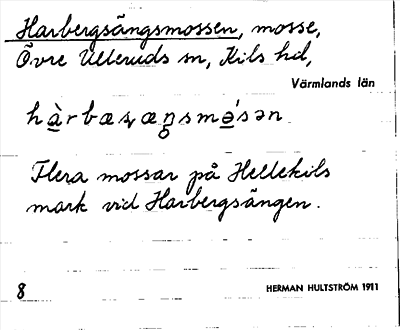 Harbergsängsmossen, mosse,
Övre Ulleruds sn, Kils hd,
Värmlands län
Flera mossar på Hellekils
mark vid Harbergsängen.
8 HERMAN HULTSTRÖM 1911